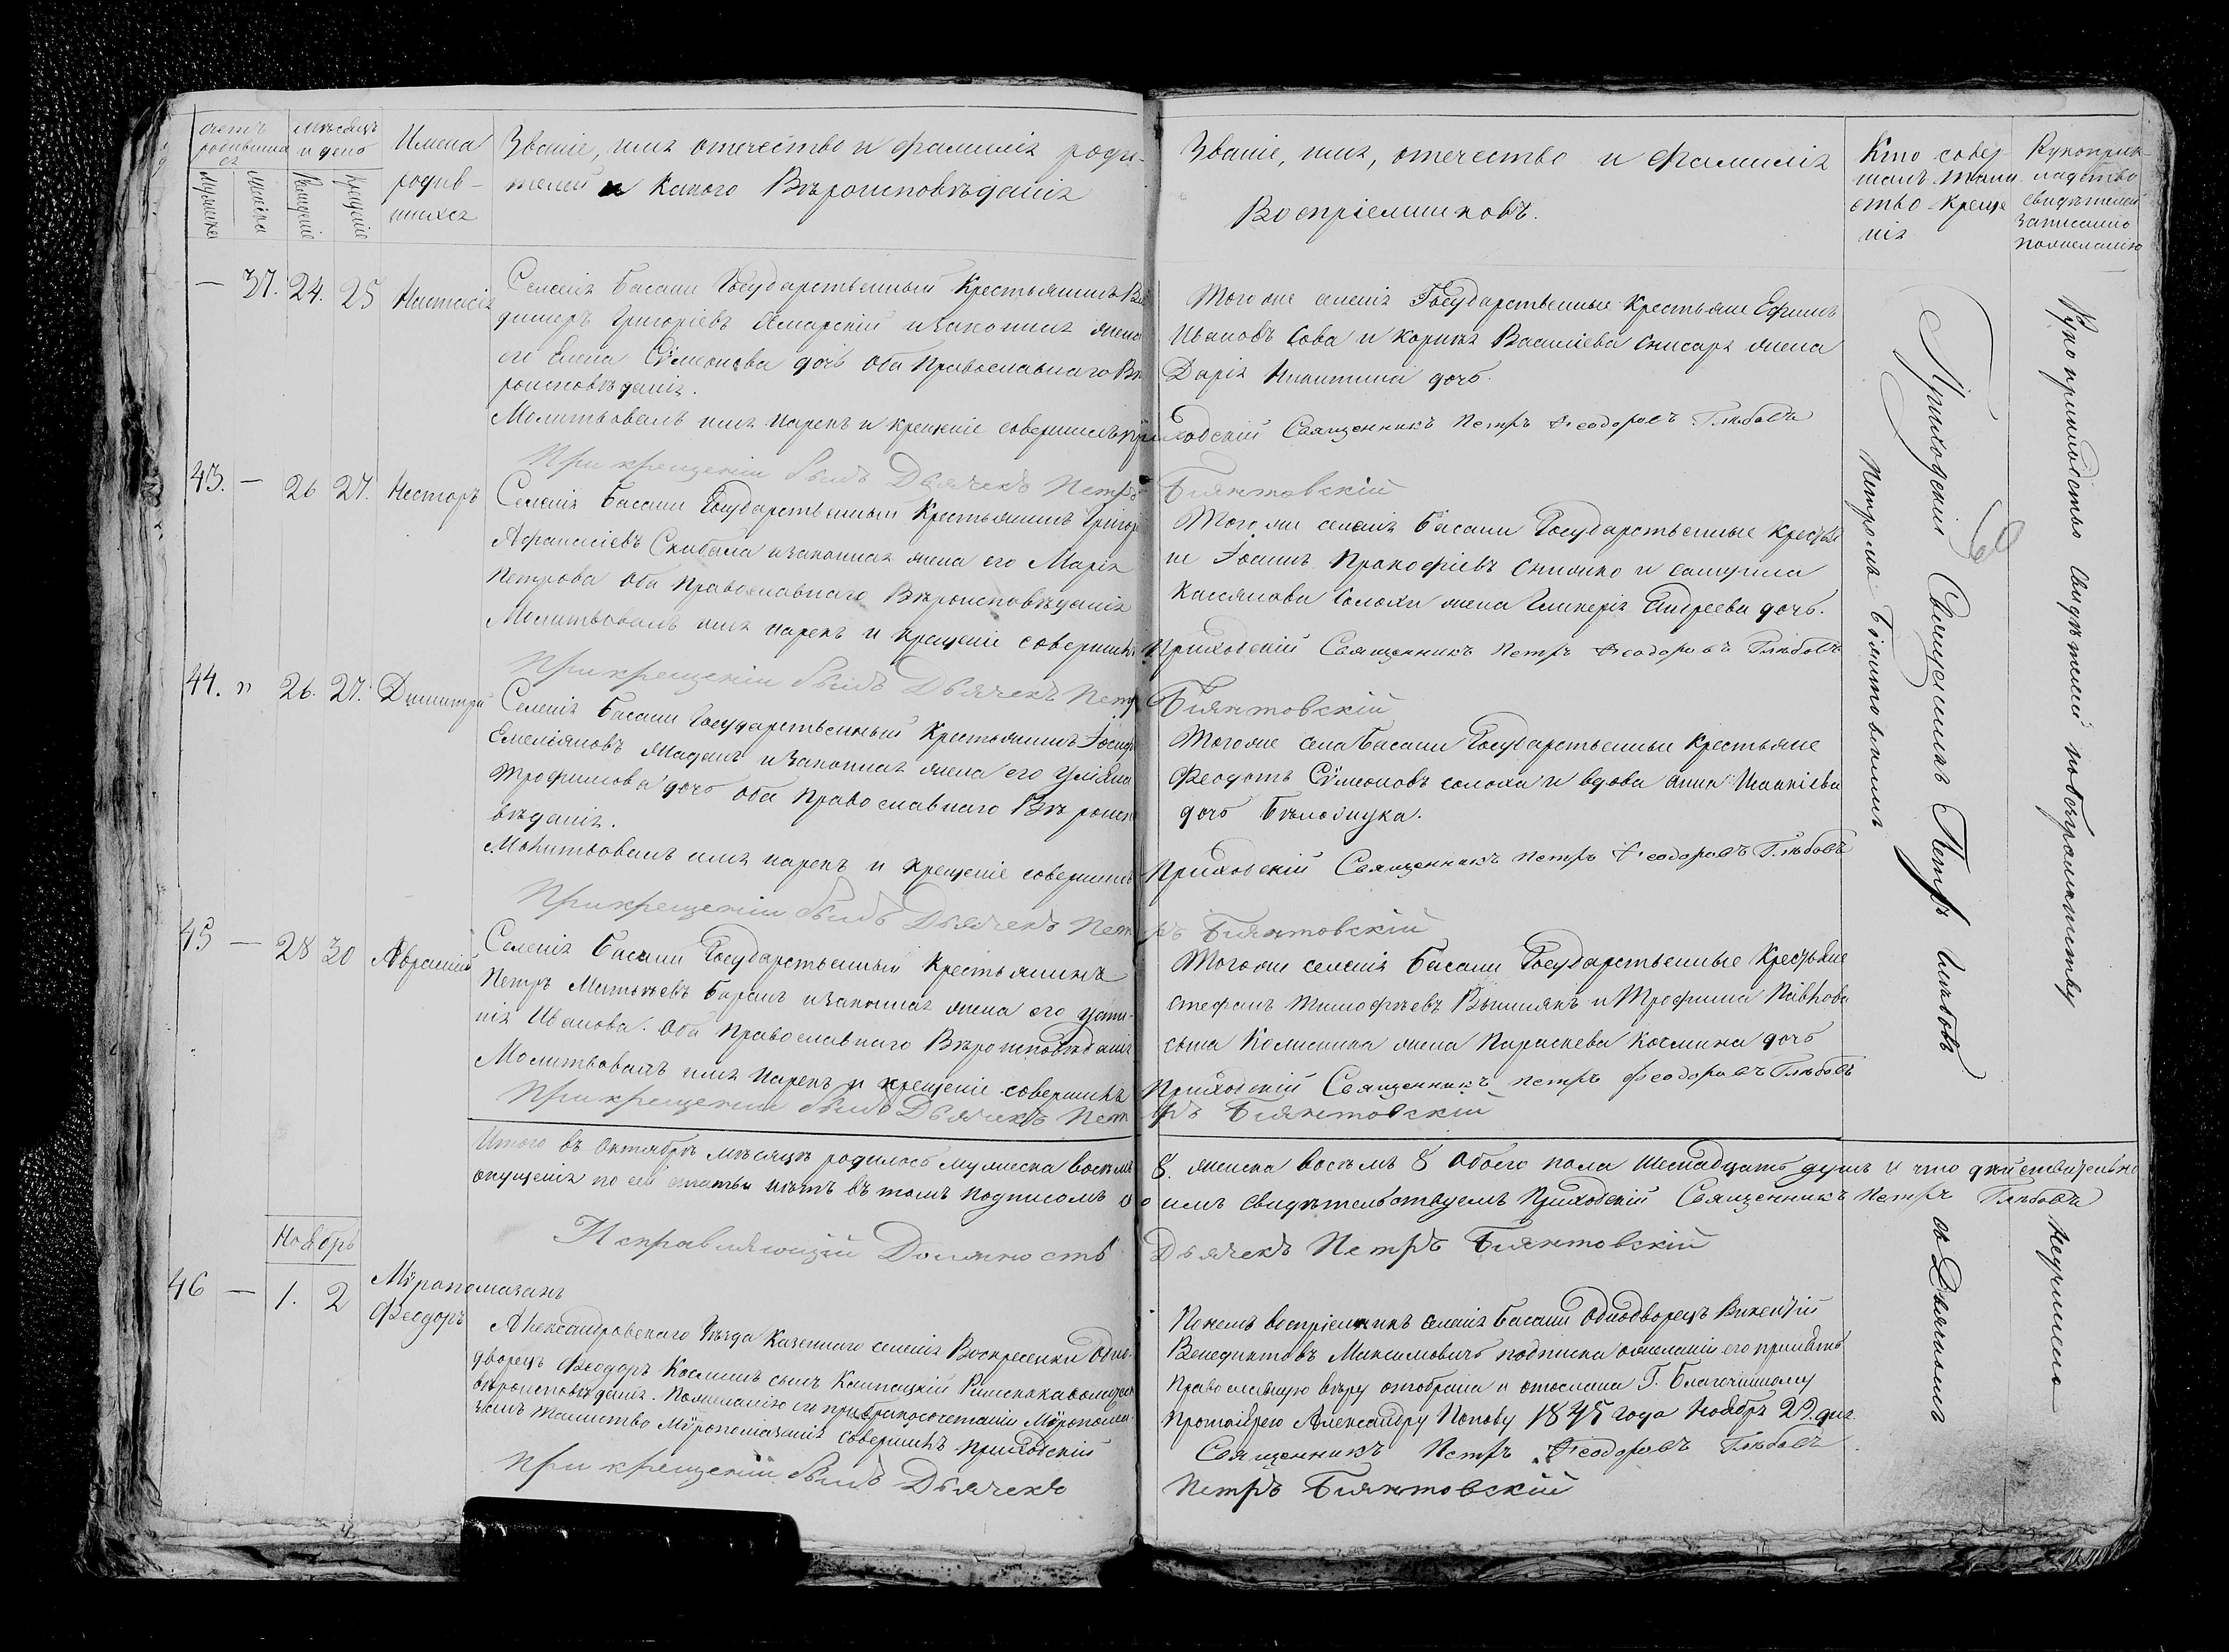 счетъ родившихся
мѣсяцъ и день
Имена родив-
шихся
Званіе, имя отечество и фамилія роди-
телей и какого Вѣроисповѣданія
Званіе, имя, отечество и Фамилія
Воспріемниковъ.
Кто совер-
шалъ таин
ство креще
нія
Рукоприк-
ладство
свидѣтелей
записано
по желанію
Мужска
Женска
Рожденіе
Крещеніе
— 37. 24. 25 Настасія
Селенія Басани Государственный Крестьянинъ Вла
димеръ Григоріевъ и законная жена
его Елена Сѵмеонова дочь Оба Православнаго Вѣ
роисповѣданія.
Молитвовалъ имя нарекъ и крещеніе совершилъ Приходскій Священникъ Петръ Ѳеодоровъ Глѣбовъ
При крещеніи былъ Дьячекъ Петръ Бѣлянтовскій
Того же селенія Государственные Крестьяне Ефимъ
Ивановъ Сова и Василіева жена
Дарія Никитина дочь.
43. — 26 27. Несторъ
Селенія Басани Государственный Крестьянинъ Григор
Афанасіевъ Скибала и законная жена его Марія
Петрова Оба Православнаго Вѣроисповѣданія
Молитвовалъ имя нарекъ и крещеніе совершилъ Приходскій Священникъ Петръ Ѳеодоровъ Глѣбовъ
При крещеніи былъ Дьячекъ Петръ Бѣлянтовскій
Того же селенія Басани Государственные Крестья
не Іоаннъ Прокофіевъ и
Касьянова Солохи жена Гликерія Андреева дочь.
44. " 26. 27. Димитрій
Селенія Басани Государственный Крестьянинъ Іосиф
Емеліяновъ и законная жена его Уліяна
Трофимова дочь Оба Православнаго Вѣроиспо
вѣданія.
Молитвовалъ имя нарекъ и крещеніе совершилъ Приходскій Священникъ Петръ Ѳеодоровъ Глѣбовъ
При крещеніи былъ Дьячекъ Петръ Бѣлянтовскій
Того же села Басани Государственныи Крестьяне
Феодотъ Сѵмеоновъ солоха и вдова Анна
дочь
45 — 28 30 Аврамій
Селенія Басани Государственный Крестьянинъ
Петръ Матвѣевъ Баранъ и законная жена его Усти-
нія Иванова. Оба Православнаго Вѣроисповѣданія
Молитвовалъ имя нарекъ и крещеніе совершилъ Приходскій Священникъ Петръ Феодоровъ Глѣбовъ
При крещеніи былъ Дьячекъ Петръ Бѣлянтовскій
Того же селенія Басани Государственные Крестьяне
Стефанъ Тимофѣевъ и Трофима Павлова
сына жена Параскева Космина дочь
Итого въ Октябрѣ мѣсяцѣ родилось мужеска восемь 8. женска восемь 8 Обоего пола Шеснадцать душъ и что дѣйствительно
опущенія по сей статьи нѣтъ въ томъ подписомъ симъ свидѣтельствуемъ Приходскій Священникъ Петръ Глѣбовъ
Исправляющій Должность Дьячекъ Петръ Бѣлянтовскій
Ноябрь
46 — 1. 2
Мѵропомазанъ
Феодоръ
Александровскаго уѣзда Казеннаго селенія Воскресенки Одно-
дворецъ Феодоръ Косминъ сынъ Римскокатолическ
вѣроисповѣданія. По желанію его при бракосочетаніи Мѵропома-
занъ Таинство Мѵропомазанія совершилъ Приходскій
Священникъ Петръ Ѳеодоровъ Глѣбовъ
При крещеніи былъ Дьячекъ Петръ Бѣлянтовскій
По немъ воспріемникъ селенія Басани Однодворецъ Викентій
Венедиктовъ Максимовичъ подписка о желаніи его принять
православную вѣру отобрана и отослана Г. Благочинному
Протоіерею Александру Попову 1845 года Ноября 29. дня.
Приходскій Священникъ Петръ Глѣбовъ
съ Дьячкомъ
Петромъ Бѣлянтовскимъ
Рукоприкладство Свидѣтелей по безграмотству
Неучинено